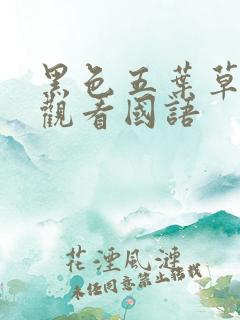 黑色五葉草
觀看國語
花湮風連
未經同意禁止轉載